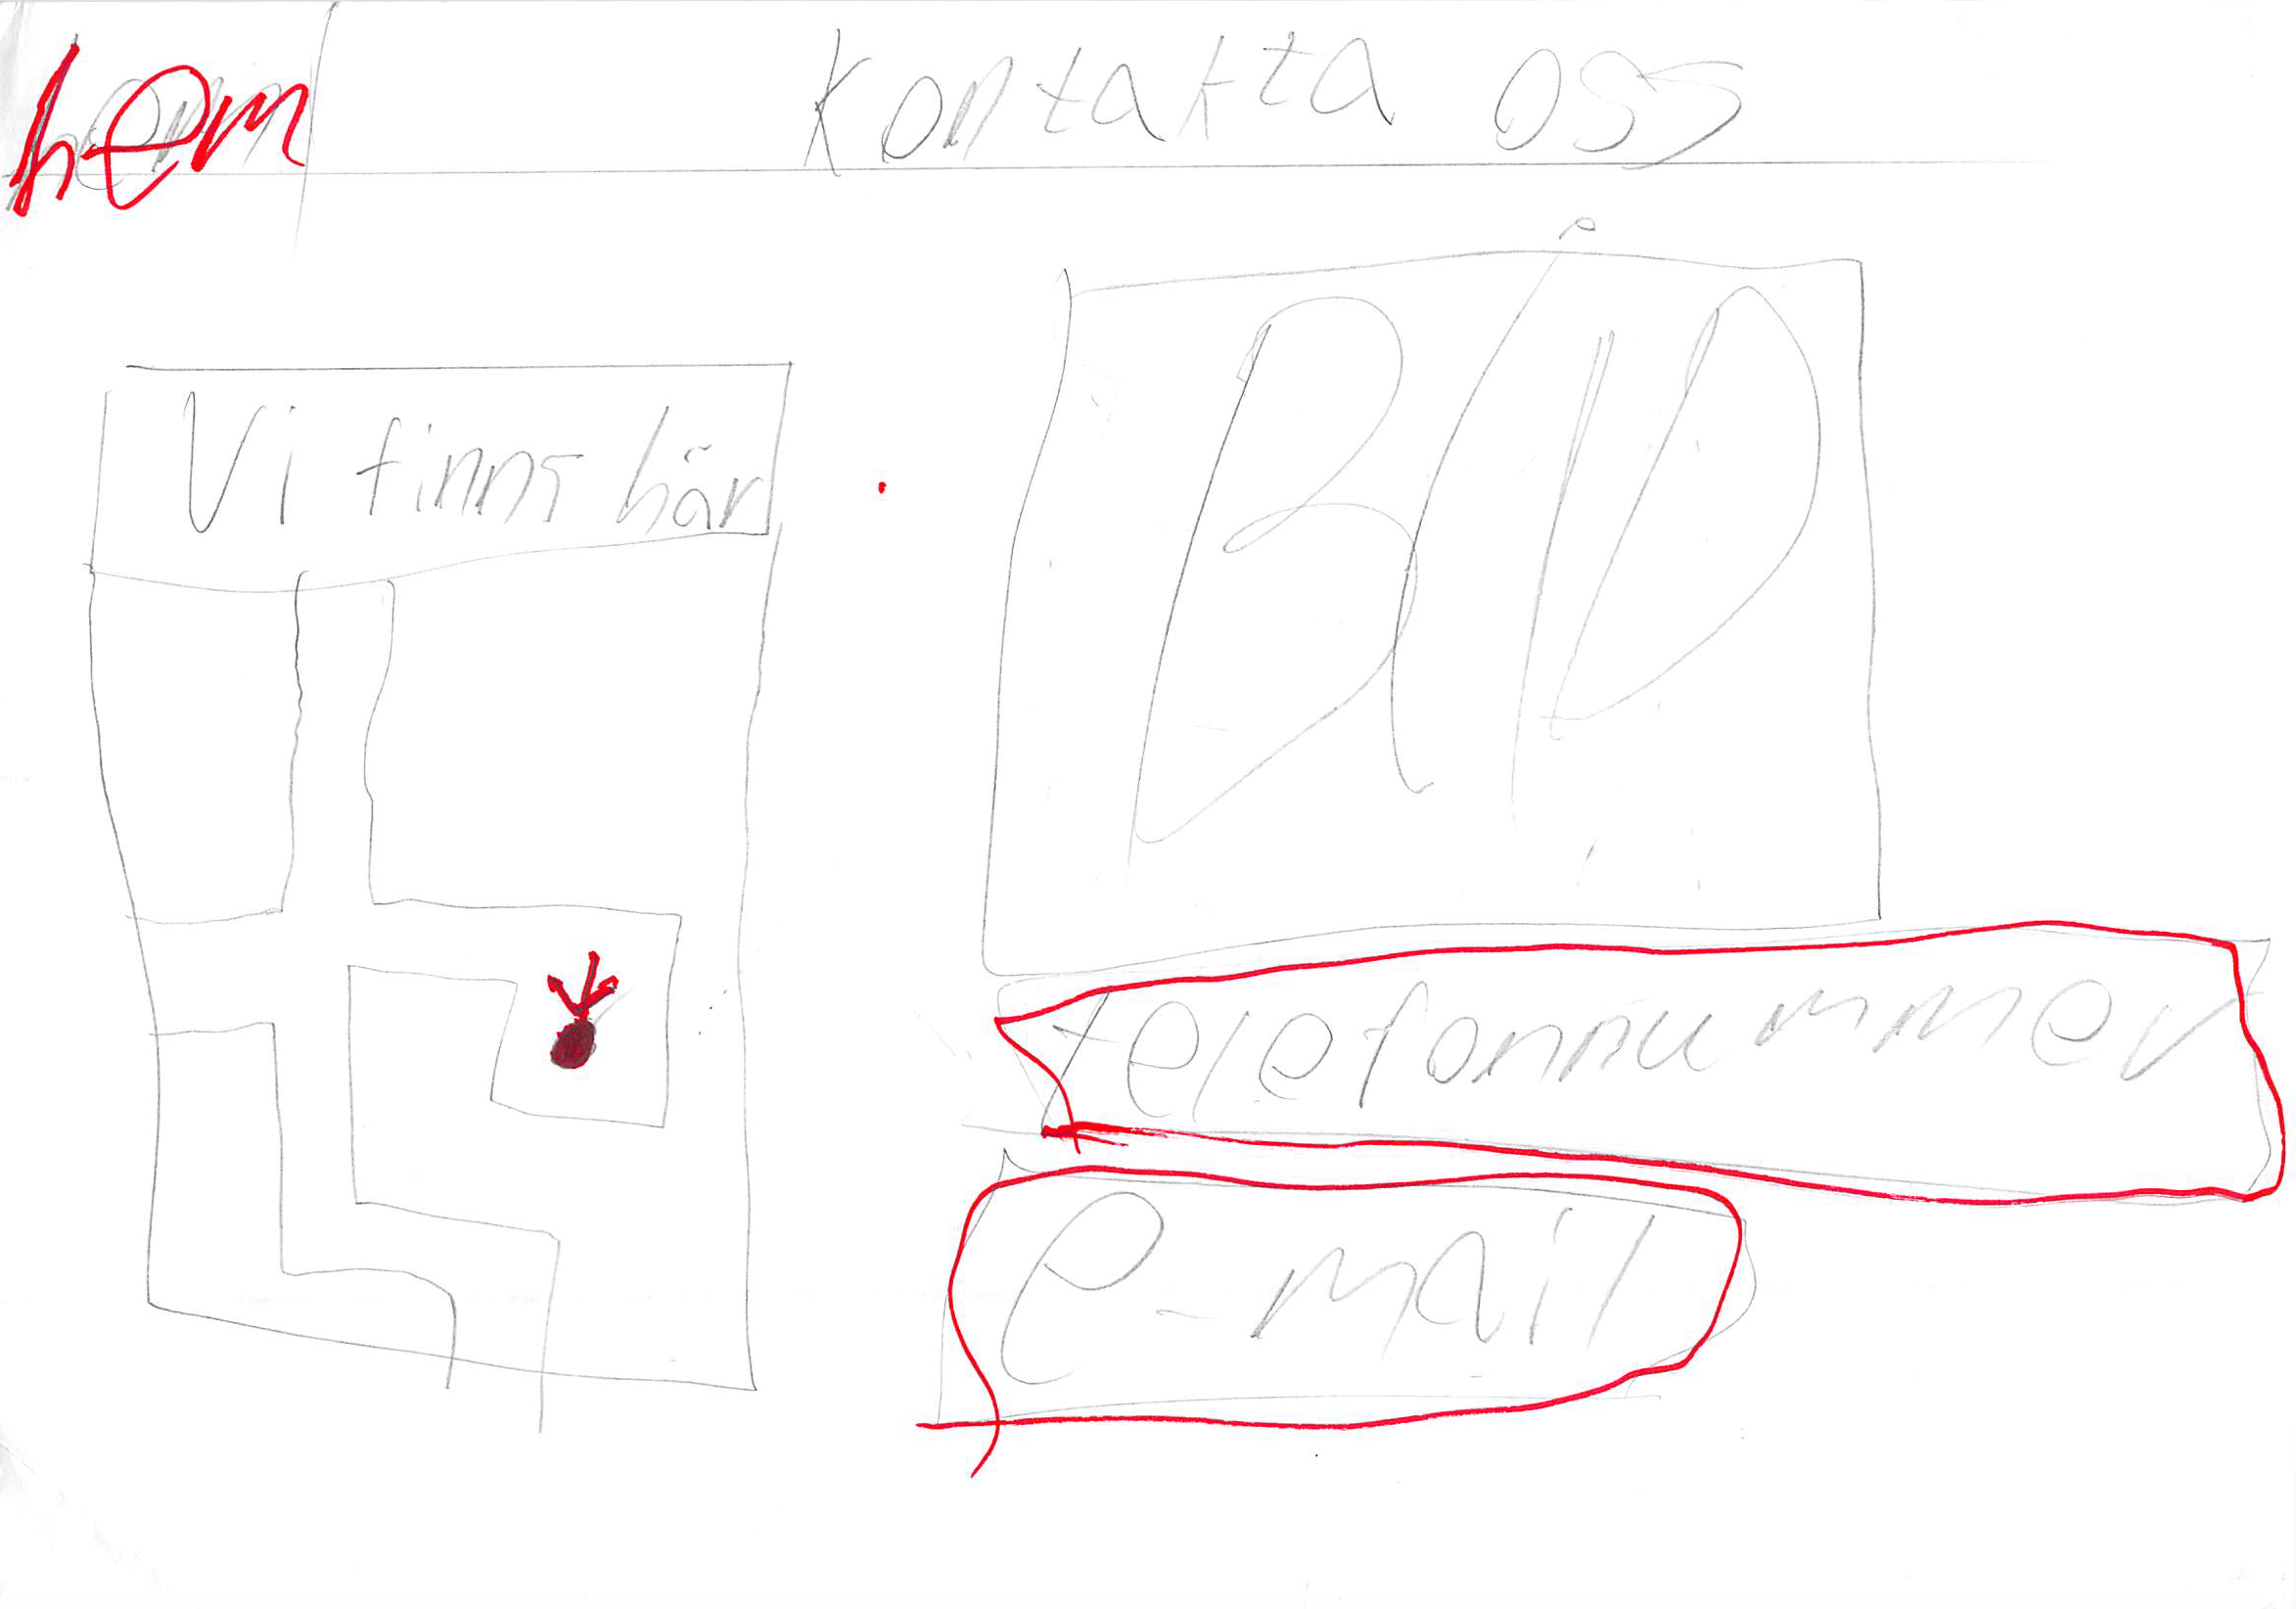 hem
Kontakta oss
Vi finns här
BILD
telefonnummer
e-mail